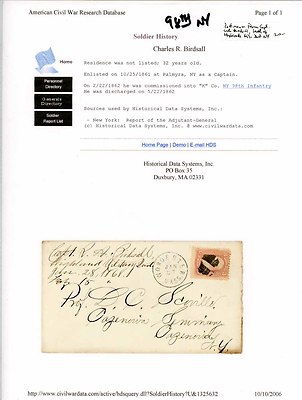 American Civil War Research Database
98th NY
Page 1 of 1
Soldier History
Home
Charles R. Birdsall
Residence was not listed; 32 years old.
Enlisted on 10/25/1861 at Palmyra, NY as a Captain.
Personnel Directory
On 2/22/1862 he was commissioned into "K" Co. NY 98th Infantry
He was discharged on 5/22/1862
Generals Directory
Sources used by Historical Data Systems, Inc.:
Soldier Report List
- New York: Report of the Adjutant-General
(c) Historical Data Systems, Inc. @ www.civilwardata.com
Home Page | Demo | E-mail HDS
Historical Data Systems, Inc.
PO Box 35
Duxbury, MA 02331
Capt.
Highland
Jan. 28, 1868
Prof L. C.
Cazenovia Seminary
Cazenovia
N. Y
http://www.civilwardata.com/active/hdsquery.dll?SoldierHistory?U&1325632
10/10/2006